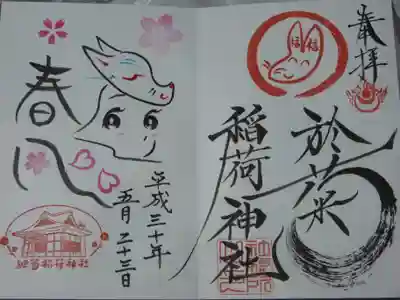 奉拝
於菊
稲荷神社
春
平成三十年
五月二十三日
於菊稲荷神社